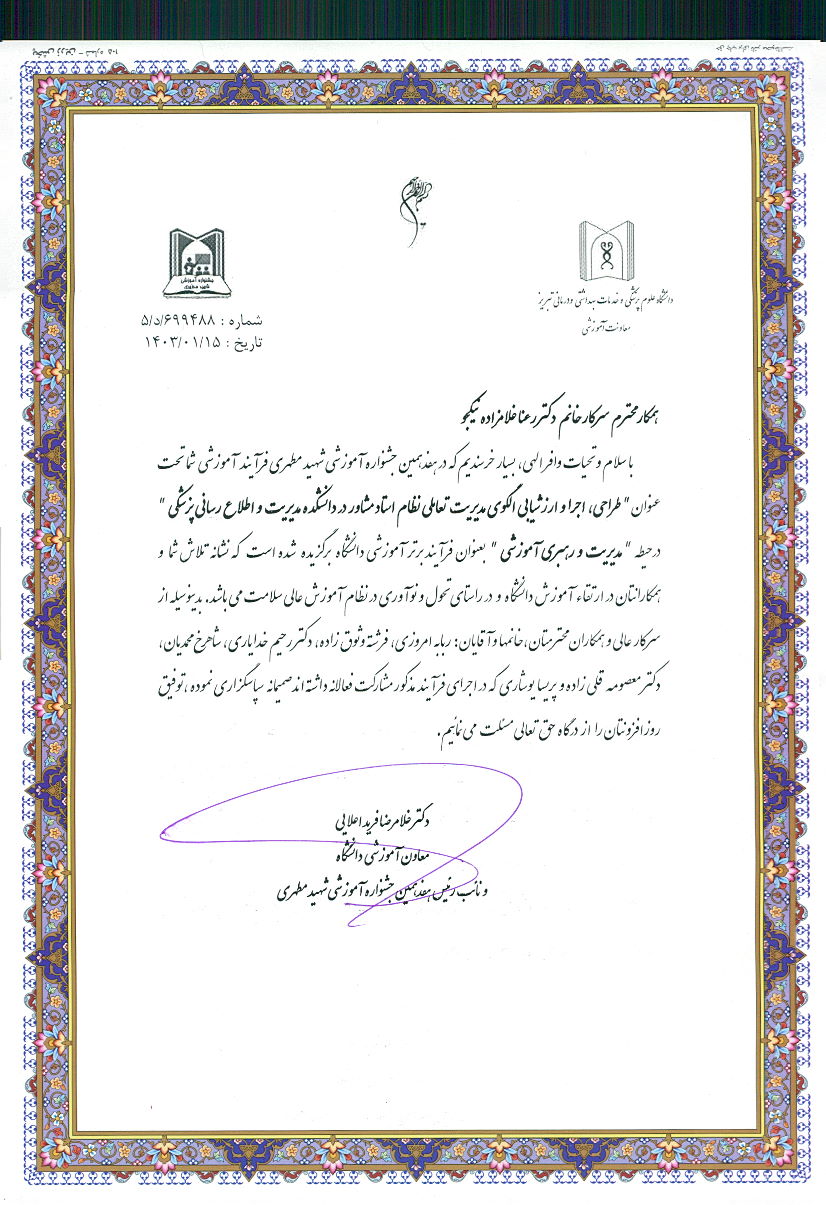 بسم الله الرحمن الرحیم
جشنواره آموزشی
شهید مطهری
دانشگاه علوم پزشکی و خدمات بهداشتی و درمانی تبریز
معاونت آموزشی
شماره : ۵/د/۶۹۹۴۸۸
تاریخ : ۱۴۰۳/۰۱/۱۵
همکار محترم سرکار خانم دکتر رعنا غلامزاده نیکجو
با سلام و تحیات وافر الهی، بسیار خرسندیم که در هفدهمین جشنواره آموزشی شهید مطهری فرآیند آموزشی شما تحت
عنوان " طراحی، اجرا و ارزشیابی الگوی مدیریت تعاملی نظام استاد مشاور در دانشکده مدیریت و اطلاع رسانی پزشکی "
در حیطه " مدیریت و رهبری آموزشی " بعنوان فرآیند برتر آموزشی دانشگاه برگزیده شده است که نشانه تلاش شما و
همکارانتان در ارتقاء آموزش دانشگاه و در راستای تحول و نوآوری در نظام آموزش عالی سلامت می باشد. بدینوسیله از
سرکار عالی و همکاران محترمتان، خانمها و آقایان: ربابه امروزی، فرشته وثوق زاده، دکتر رحیم خدایاری، شاهرخ محمدیان،
دکتر معصومه قلی زاده و پریسا یوشاری که در اجرای فرآیند مذکور مشارکت فعالانه داشته اند صمیمانه سپاسگزاری نموده ،توفیق
روز افزونتان را از درگاه حق تعالی مسئلت می نمائیم.
دکتر غلامرضا فرید اعلایی
معاون آموزشی دانشگاه
و نائب رئیس هفدهمین جشنواره آموزشی شهید مطهری